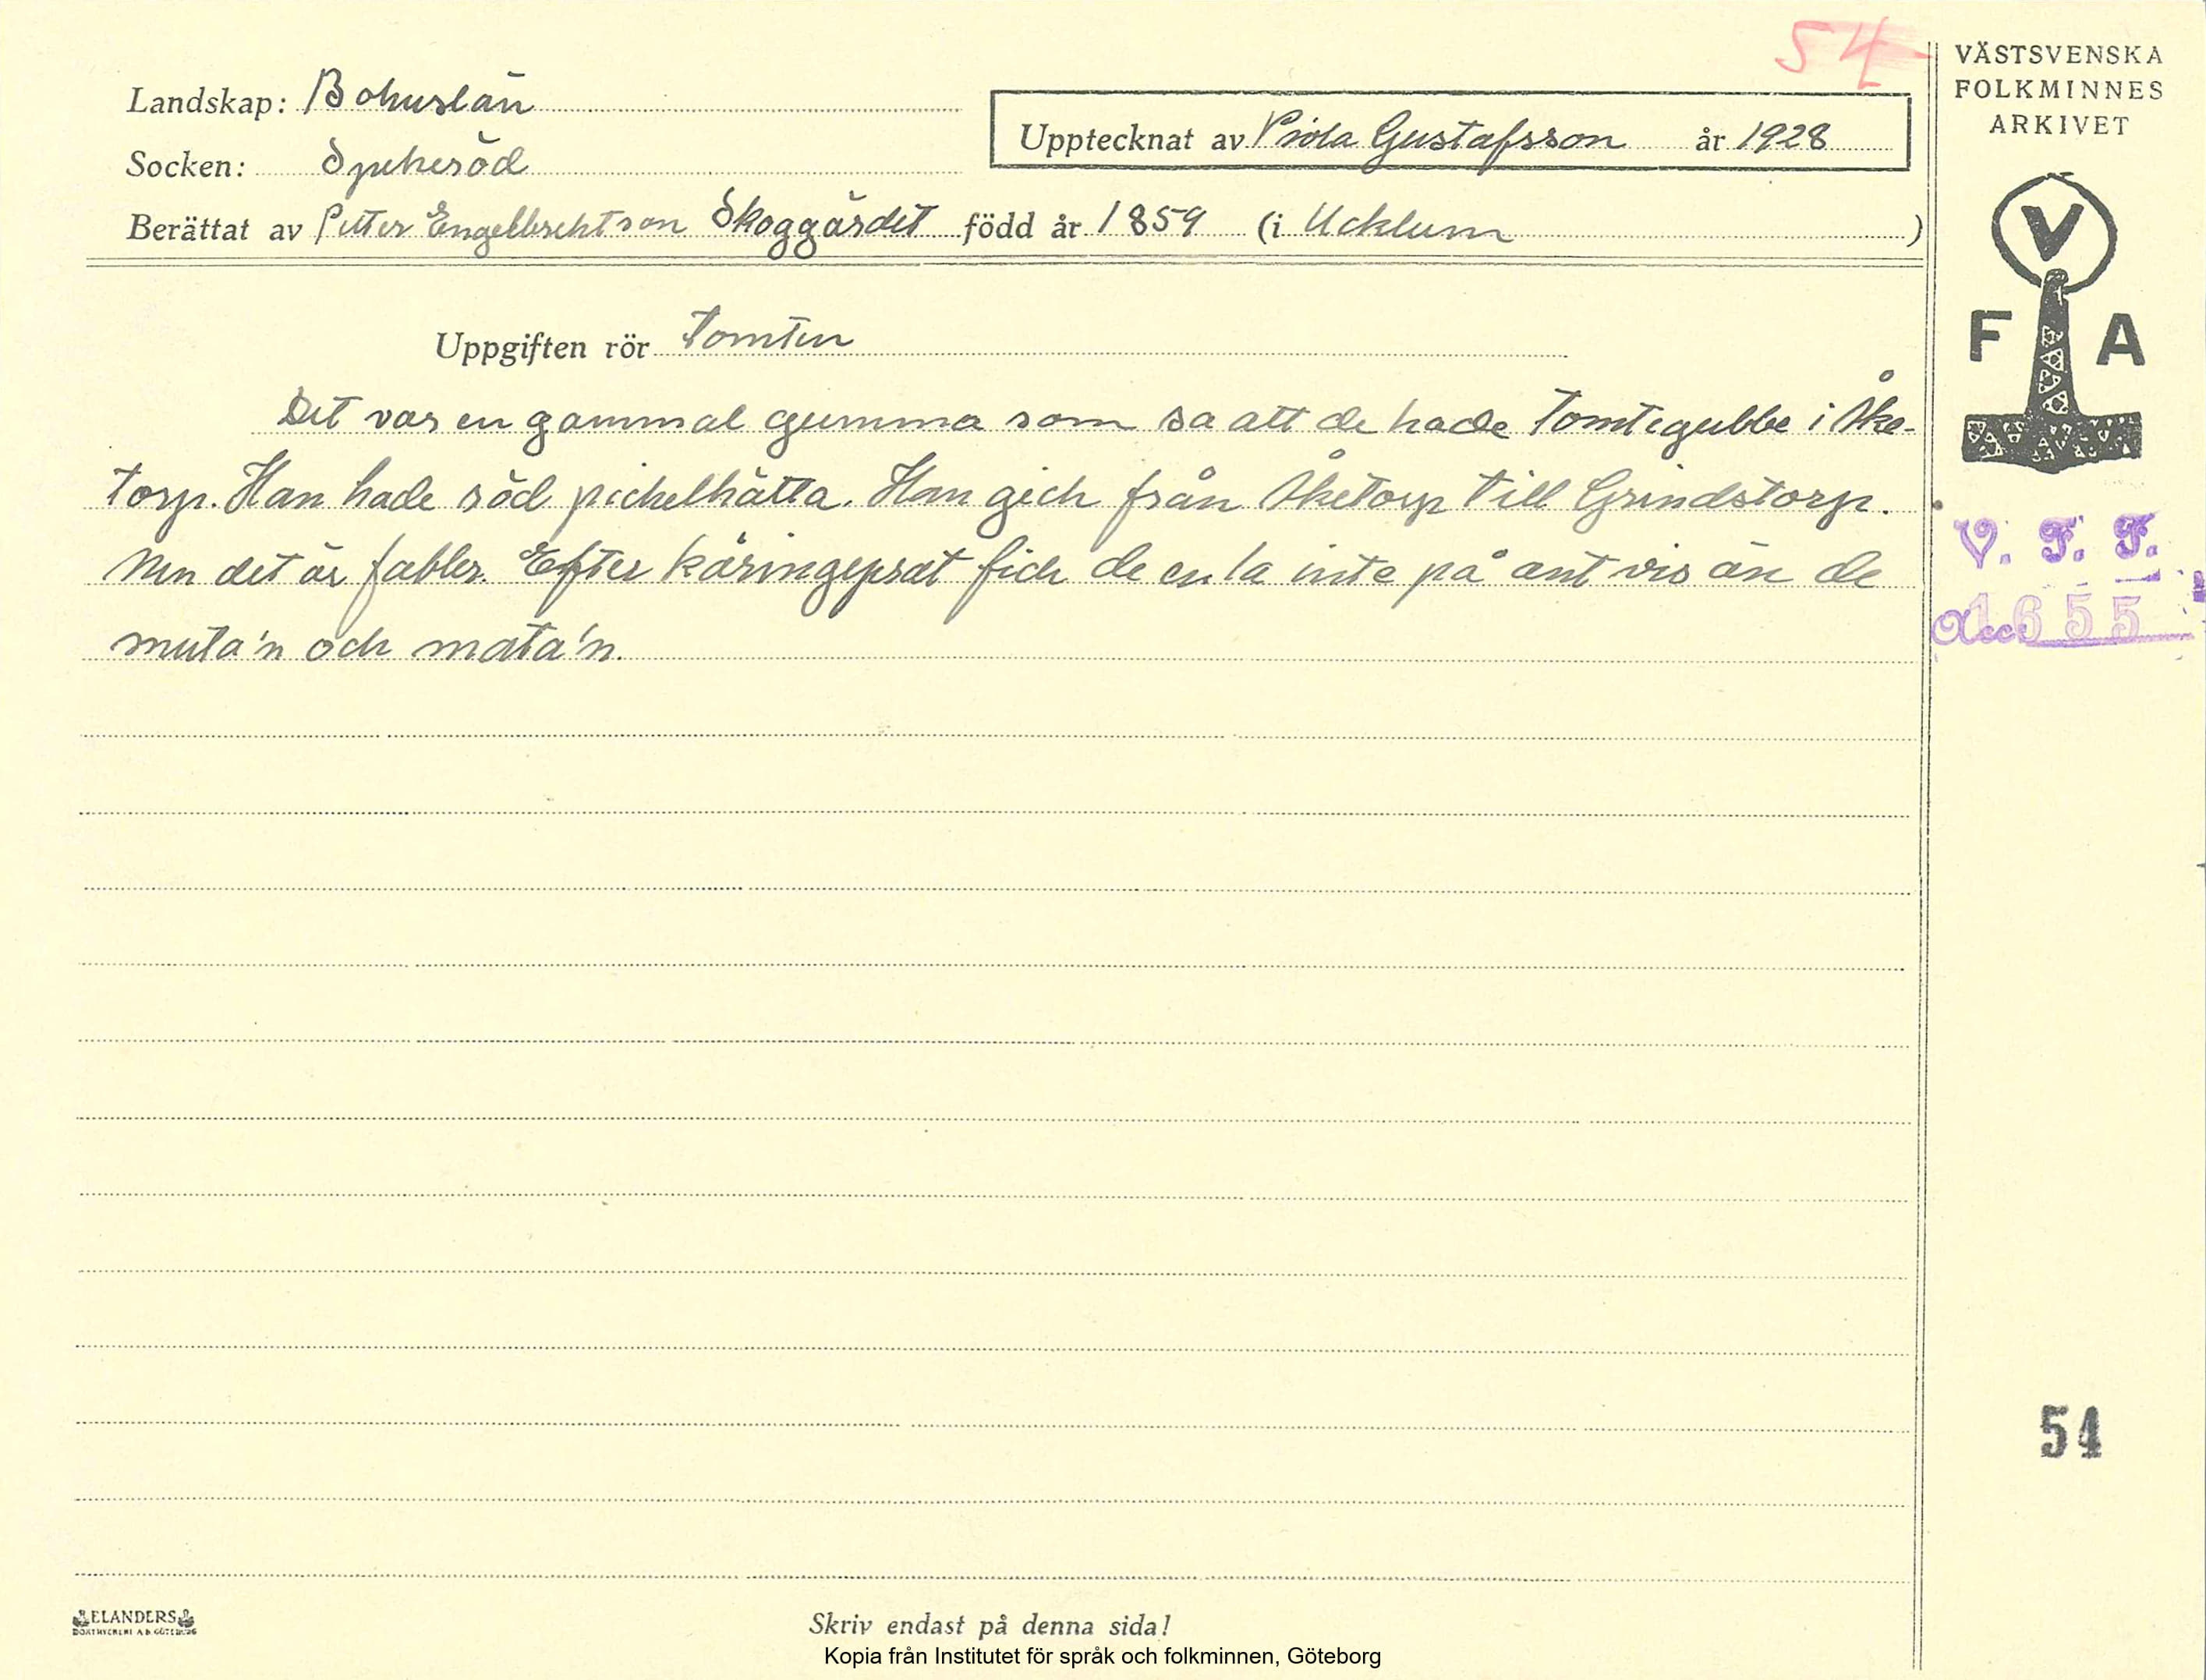 54
VÄSTSVENSKA
FOLKMINNES
ARKIVET
Landskap: Bohuslän
Upptecknat av Viola Gustafsson år 1928
Socken: Spekeröd
Berättat av Petter Engelbrektson Skoggärdet född år 1859 (i Ucklum)
V
F A
Uppgiften rör Tomten
Det var en gammal gumma som sa att de hade tomtegubbe i Åke-
torp. Han hade röd pickelhätta. Han gick från Åketorp till Grindstorp.
Men det är fabler. Efter käringeprat fick de en la inte på ant vis än de
muta'n och mata'n.
V. F. F.
Acc. 1655
54
ELANDERS
BOKTRYCKERI A.B. GÖTEBORG
Skriv endast på denna sida!
Kopia från Institutet för språk och folkminnen, Göteborg